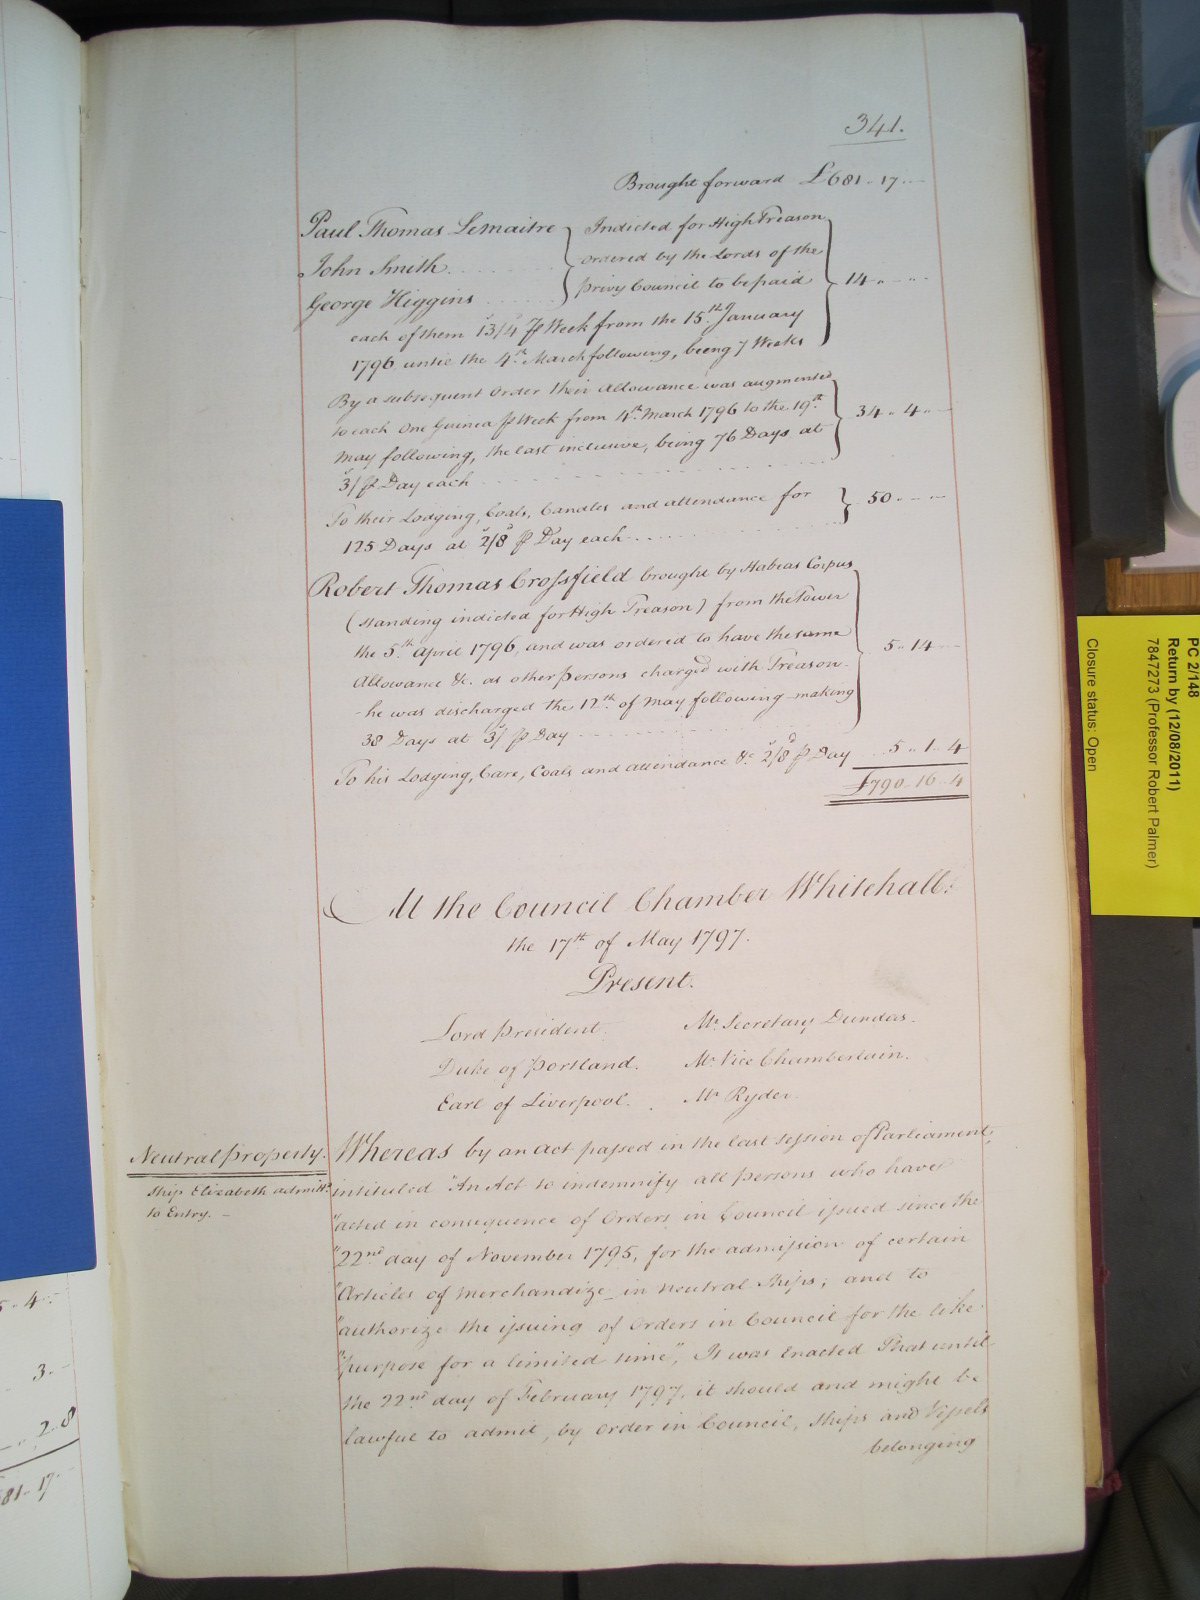 341.
Brought forward £681 .. 17 ..
Paul Thomas Lemaitre } Indicted for High Treason
John Smith } ordered by the Lords of the
George Higgins } privy Council to be paid
each of them 13/4 ⅌ Week from the 15th January
1796 until the 4th March following, being 7 Weeks } 14 .. .. ..
By a subsequent Order their Allowance was augmented
to each One Guinea ⅌ Week from 4th March 1796 to the 19th
May following, the last inclusive, being 76 Days at
3/ ⅌ Day each } 34 .. 4 ..
To their Lodging, Coals, Candles and attendance for
125 Days at 2/8 ⅌ Day each } 50 .. .. ..
Robert Thomas Crossfield brought by Habeas Corpus
(standing indicted for High Treason) from the Tower
the 5th April 1796, and was ordered to have the same
Allowance &c. as other persons charged with Treason
- he was discharged the 12th of May following making
38 Days at 3/ ⅌ Day } 5 .. 14 ..
To his Lodging, Care, Coals and attendance &c 2/8 ⅌ Day 5 .. 1 .. 4
£790 .. 16 .. 4
At the Council Chamber Whitehall.
the 17th of May 1797.
Present.
Lord President. Mr. Secretary Dundas
Duke of Portland. Mr. Vice Chamberlain.
Earl of Liverpool. Mr. Ryder.
Neutral property.
Ship Elizabeth admitt'd
to Entry. -
Whereas by an Act passed in the last session of Parliament,
intituled "An Act to indemnify all persons who have
"acted in consequence of Orders in Council issued since the
"22nd day of November 1795, for the admission of certain
"Articles of Merchandize in neutral Ships; and to
"authorize the issuing of Orders in Council for the like
"purpose for a limited time", It was Enacted That until
the 22nd day of February 1797, it should and might be
lawful to admit, by Order in Council, Ships and Vessels
belonging
5 .. 4 ..
3 .
2 . 8
81 .. 17
PC 2/148
Return by (12/08/2011)
7847273 (Professor Robert Palmer)
Closure status: Open